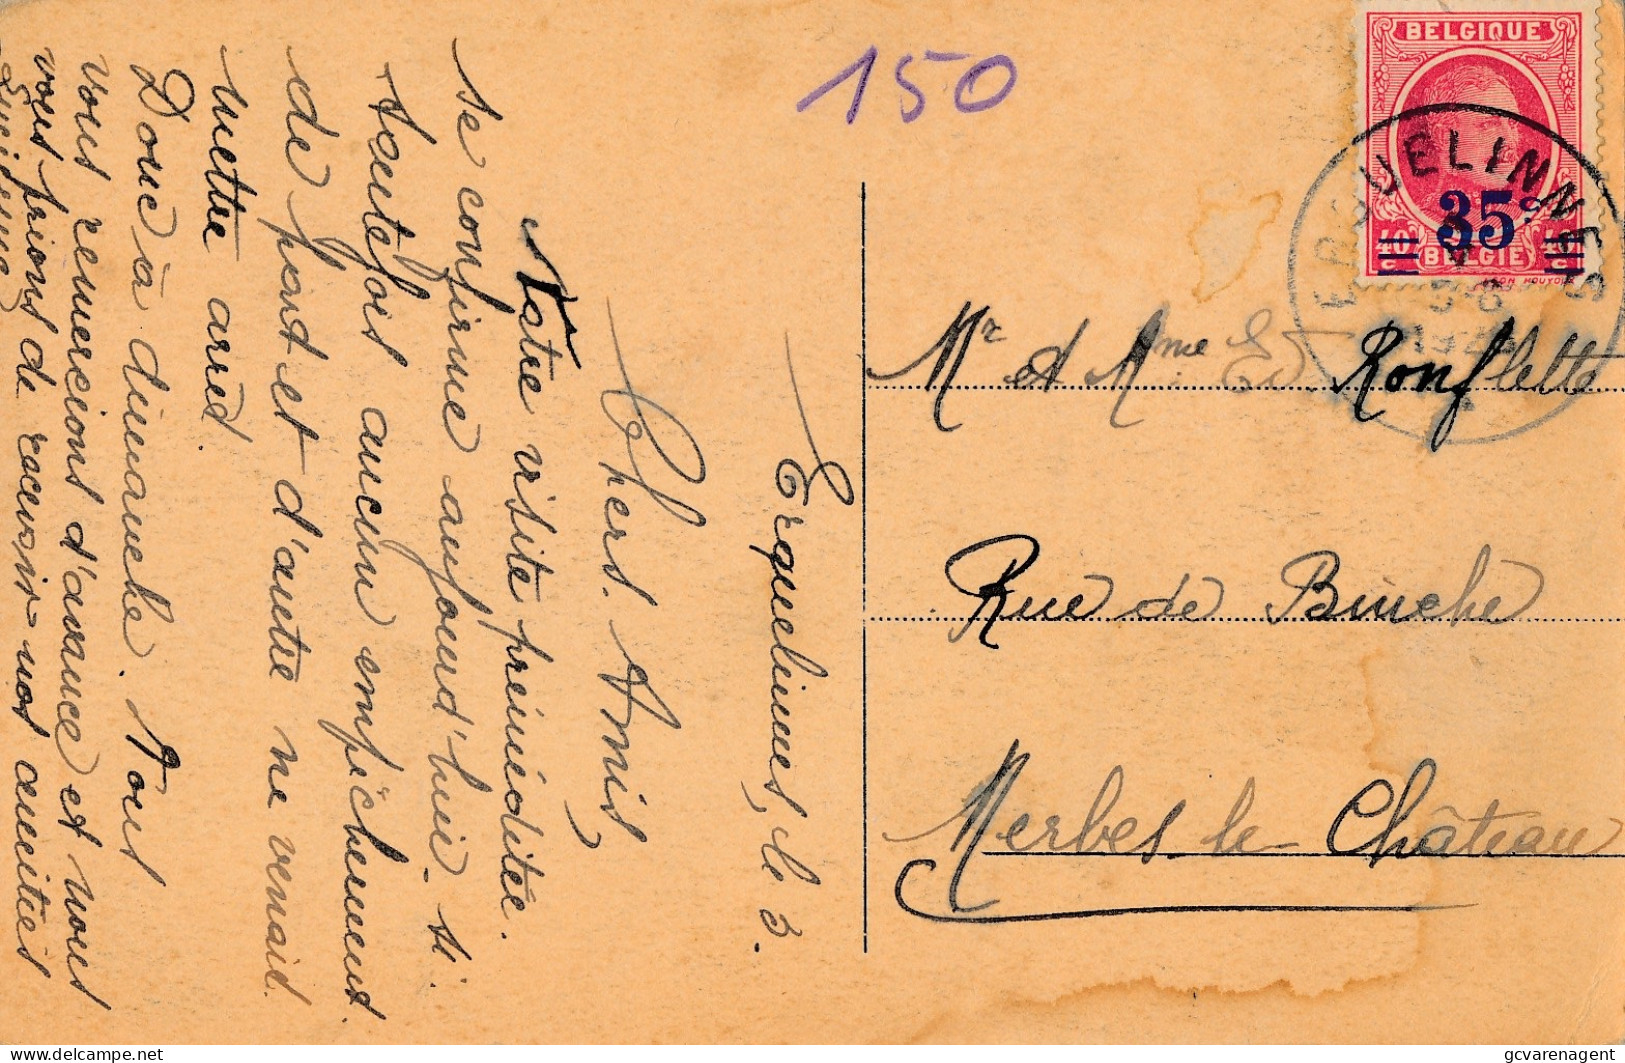 Erquelinnes, le 3.
Chers Amis,
Notre visite préméditée
se confirme aujourd'hui - si
toutefois aucun empêchement
de part et d'autre ne venait
mettre arrêt.
Donc à dimanche. Nous
vous remercions d'avance et nous
vous prions de recevoir nos amitiés
150
BELGIQUE
35c
40 c
BELGIE
ERQUELINNES
Mr et Mme Ed Ronflette
Rue de Binche
Merbes-le-Château
delcampe.net
gcvarenagent